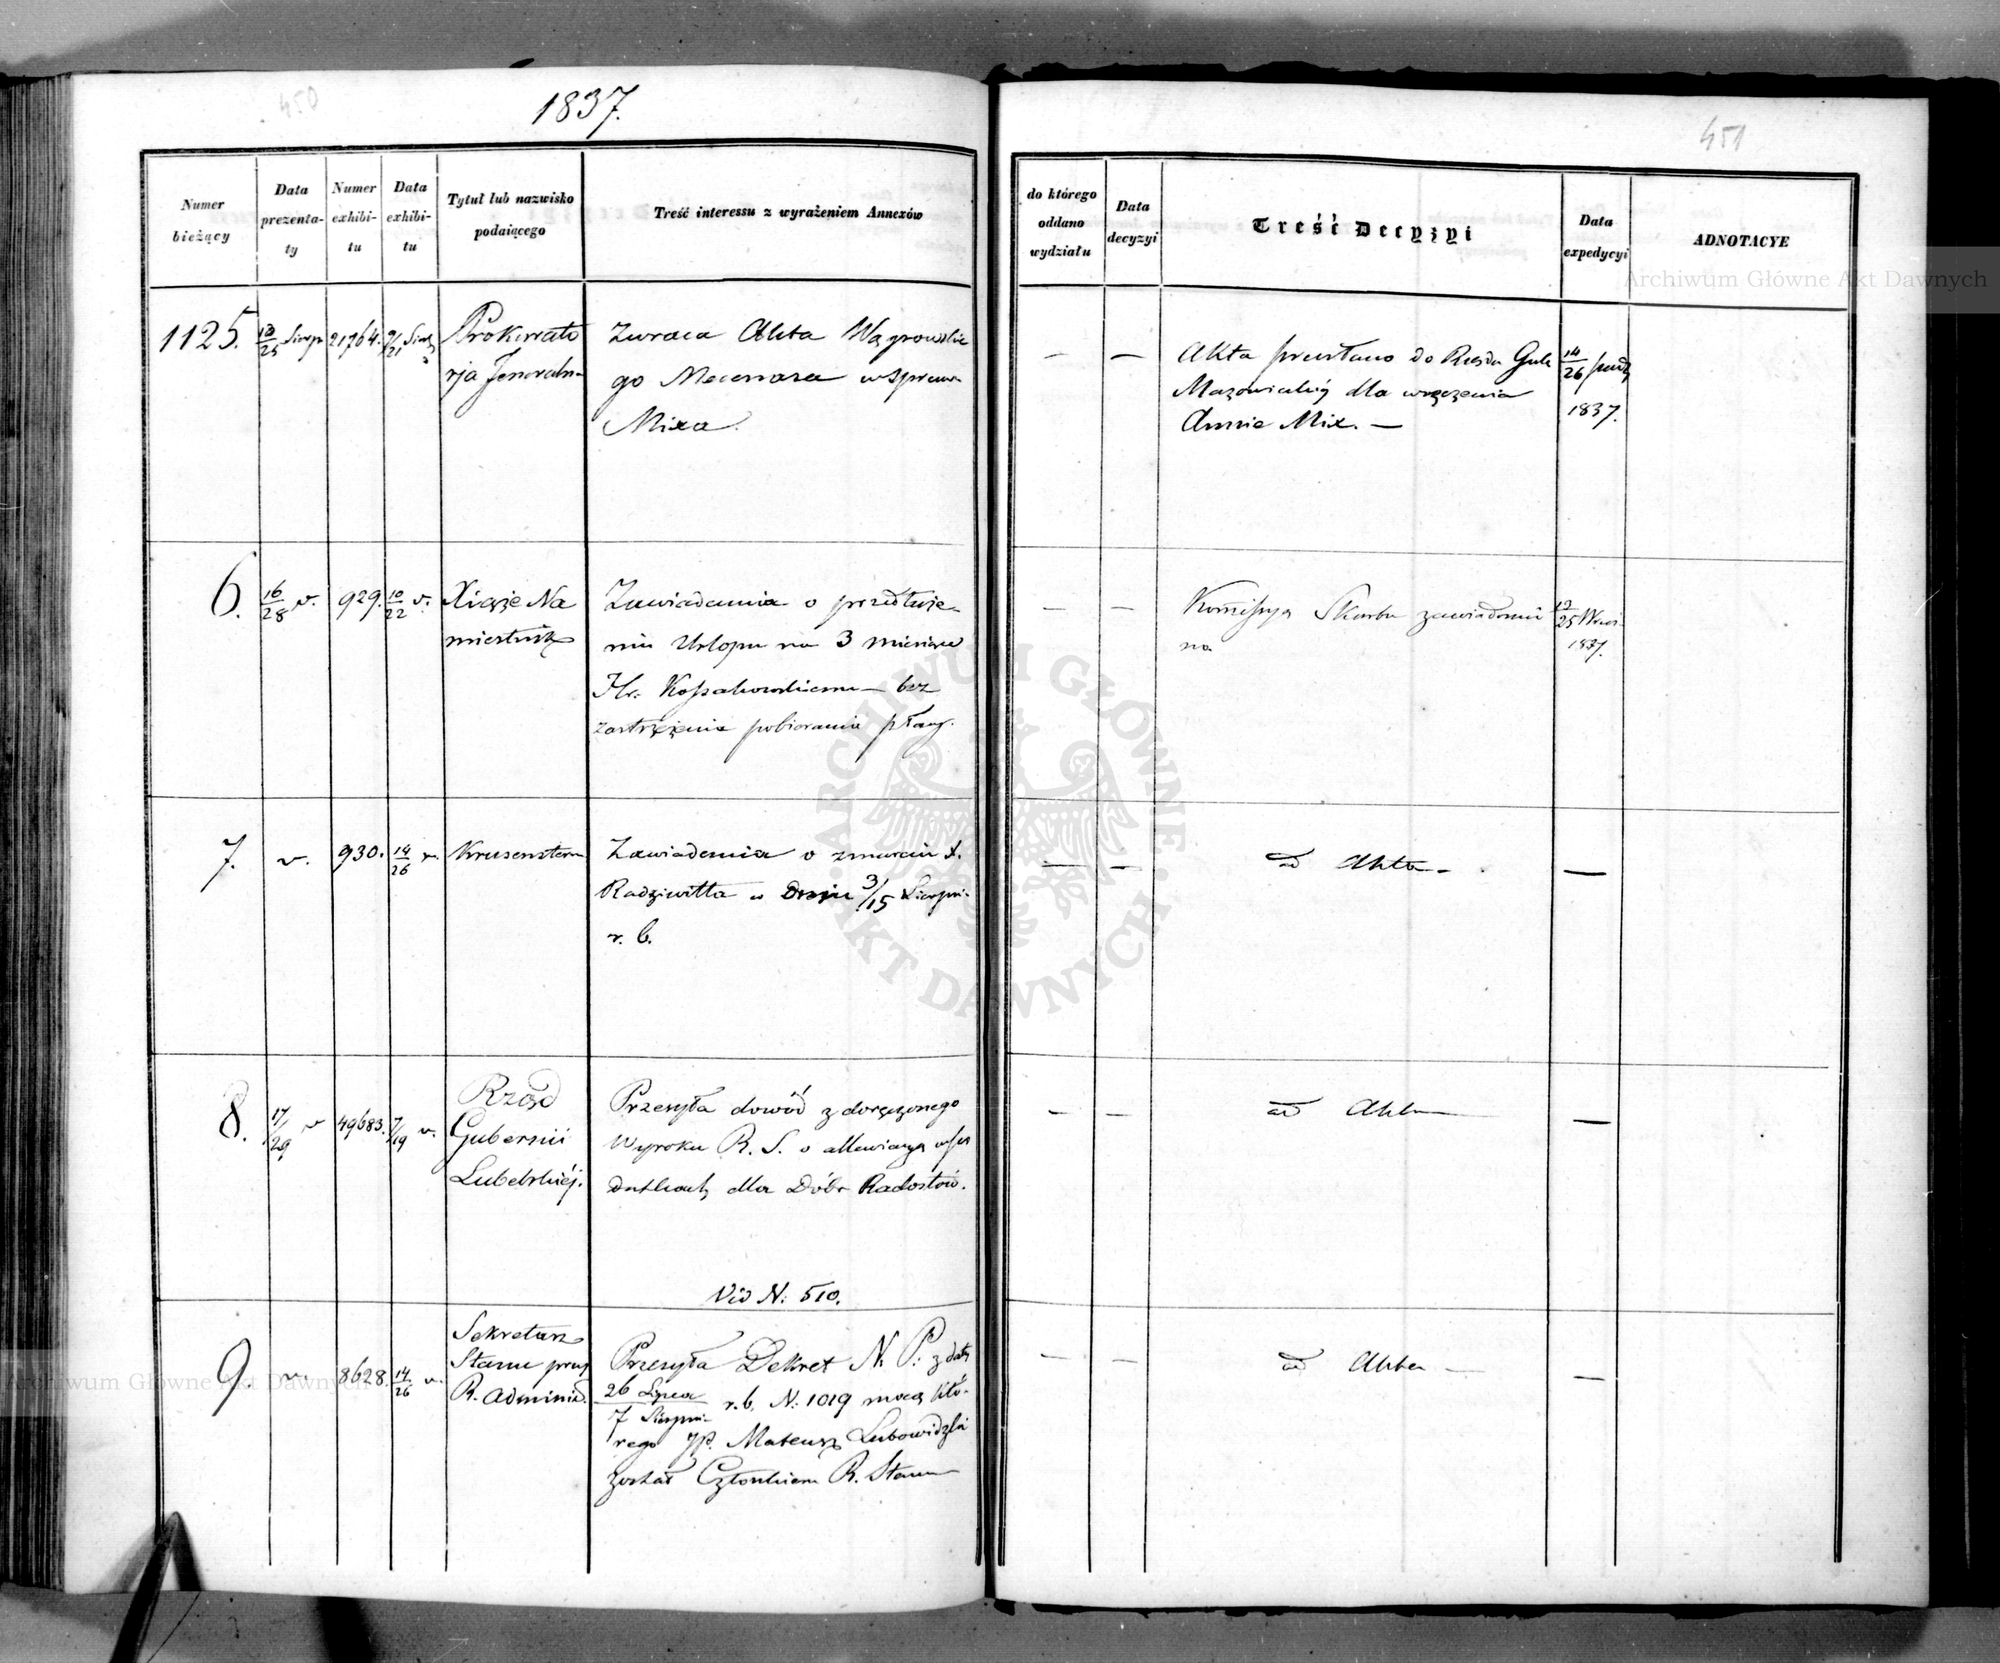 450
1837.
Numer bieżący
Data prezenta-ty
Numer exhibi-tu
Data exhibi-tu
Tytuł lub nazwisko podaiącego
Treść interessu z wyrażeniem Annexów
1125. 13/25 Sierp 21764. 9/21
Prokurato
rja Jeneralna
Zwraca Akta Wągrowskie
go Mecenasa w sprawie
Mixa.
6. 16/28 v. 929. 10/22 v.
Xiąże Na
miestnik
Zawiadamia o przedłuże-
niu Urlopu na 3 miesiące
Hr. Kossakowskiemu — bez
zastrzeżenia pobierania płacy.
7. v. 930. 14/26 v.
Krusenstern
Zawiadamia o zmarciu X.
Radziwiłła w Dniu 3/15 Sierpn.
r. b.
8. 17/29 v 49683. 7/19 v.
Rząd
Gubernii
Lubelskiéj.
Przesyła dowód z doręczonego
Wyroku R. S. o allewiacyą w po
datkach dla Dóbr Radostów.
Vid N: 510.
9. v. 8628. 14/26 v.
Sekretarz
Stanu przy
R. Administ.
Przesyła Dekret N. P. z daty
26 Lipca / 7 Sierpn. r. b. N: 1019 mocą któ-
rego JP. Mateusz Lubowidzki
został Członkiem R. Stanu
451
do którego oddano wydziału
Data decyzyi
Treść Decyzyi
Data expedycyi
ADNOTACYE
— — Akta przesłano do Rządu Gub
Mazowieckiéj dla wręczenia
Annie Mix. —
14/26
1837.
— — Kommissya Skarbu zawiadomio
na
13/25 Wrześ.
1837.
— — ad Akta — —
— — ad Akta — —
— — ad Akta — —
Archiwum Główne Akt Dawnych
ARCHIWUM GŁÓWNE
AKT DAWNYCH
Archiwum Główne Akt Dawnych